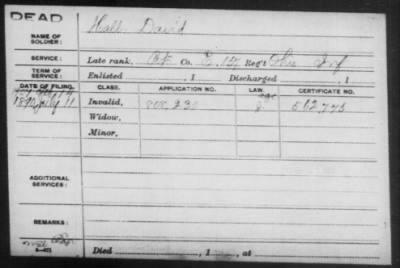 DEAD
NAME OF SOLDIER: Hall David
SERVICE: Late rank, Pt. Co. E, 157 Reg't Ohio Inf
TERM OF SERVICE: Enlisted , 1 Discharged , 1
DATE OF FILING. CLASS. APPLICATION NO. LAW. CERTIFICATE NO.
1890 July 11 Invalid, 808,230 562,775
Widow,
Minor,
ADDITIONAL SERVICES:
REMARKS:
Died , 1 , at